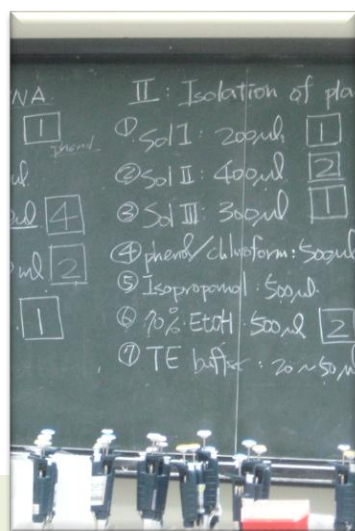 NA
1
phenol
μl
μl 4
ml 2
1
II: Isolation of pla
① Sol I: 200μl 1
② Sol II: 400μl 2
③ Sol III: 300μl 1
④ phenol/chloroform: 500μl
⑤ Isopropanol: 500μl
⑥ 70% EtOH: 500μl 2
⑦ TE buffer: 20~50μl